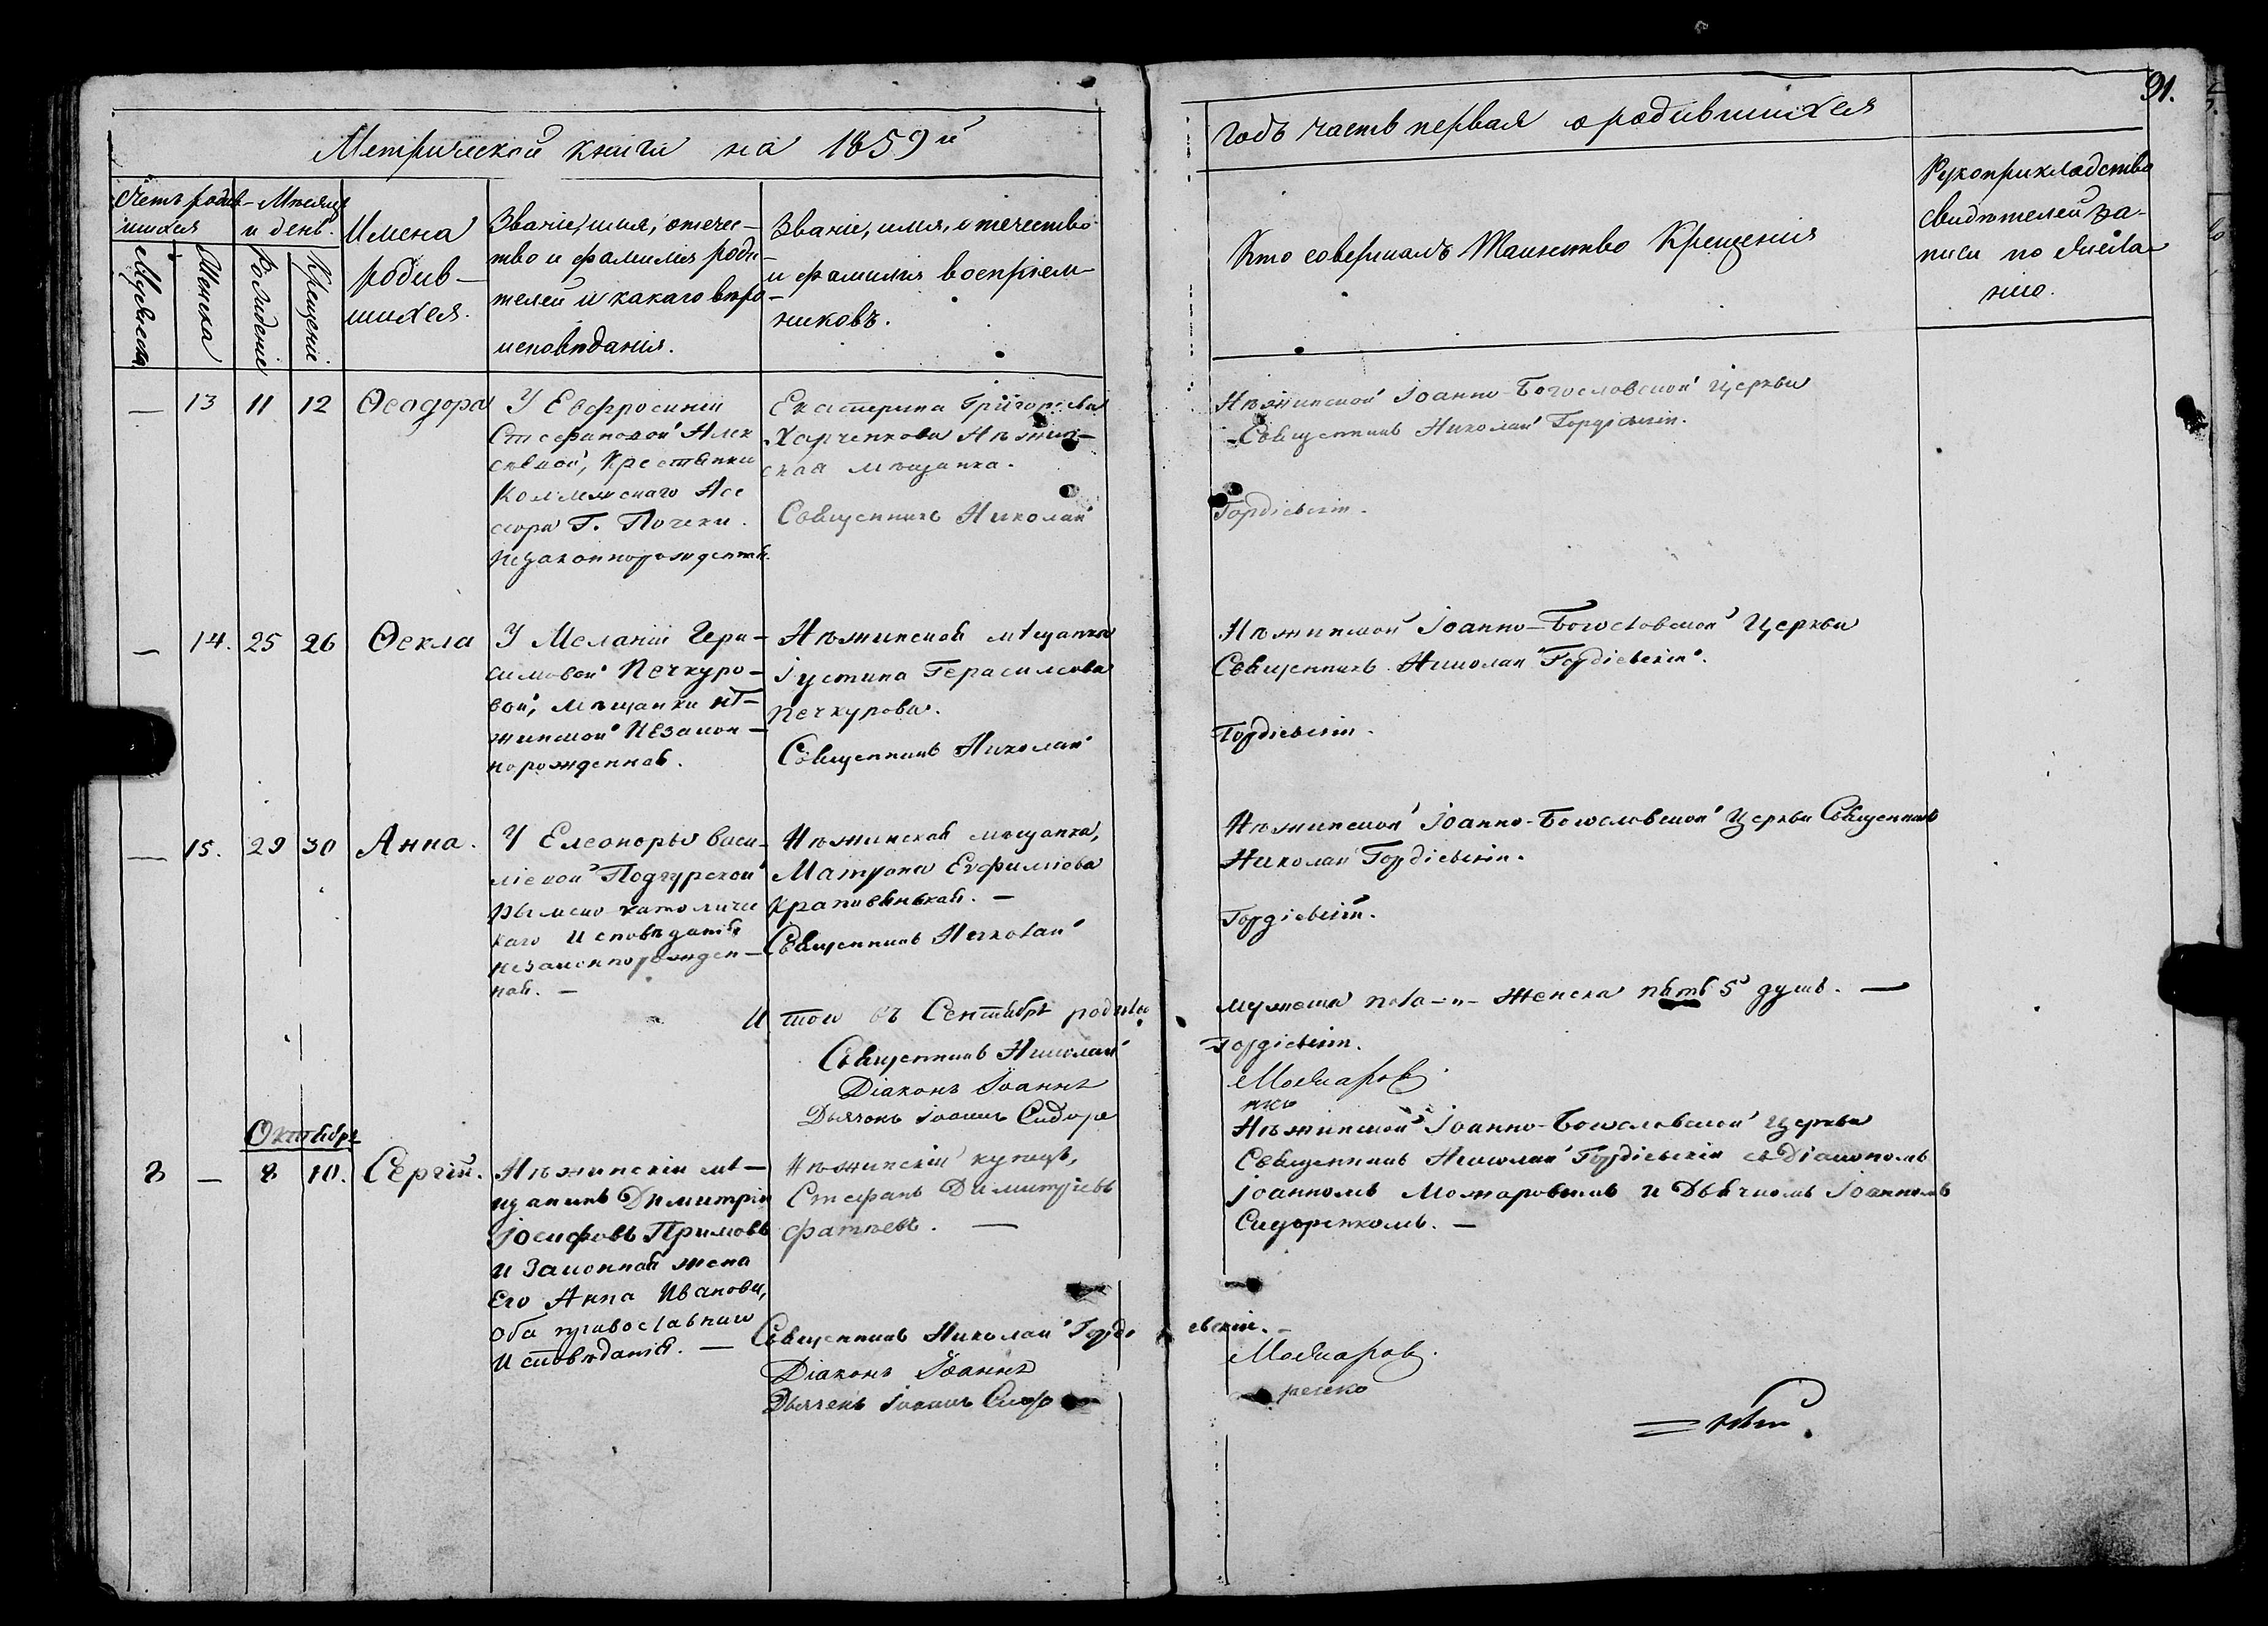 Метрической книги на 1859й
годъ часть первая о родившихся
91.
Счетъ родив-
шихся
Мѣсяцъ
и день.
Мужеска
Женска
Рожденіе
Крещеніе
Имена
родив-
шихся.
Званіе, имя, отече-
ство и фамилія роди-
телей и какаго вѣро-
исповѣданія.
Званіе, имя, отечество
и фамилія воспріем-
никовъ.
Кто совершалъ Таинство Крещенія
Рукоприкладство
свидѣтелей за-
писи по желанію.
— 13 11 12 Ѳеодора
У Евфросиніи
Стефановой Алек
сѣевой, Крестьянки
Коллежскаго Асе
сора Г. Почеки.
незаконнорожденна.
Екатерина Григоріева
Харченкова Нѣжин-
ская мѣщанка.
Священникъ Николай
Нѣжинской Іоанно-Богословской Церкви
Священникъ Николай Гордіевскій.
Гордіевскій.
— 14. 25 26 Ѳекла
У Меланіи Гера-
симовой Печкуро-
вой, мѣщанки нѣ-
жинской незакон-
норожденная.
Нѣжинская мѣщанка
Іустина Герасимова
Печкурова.
Священникъ Николай
Нѣжинской Іоанно-Богословской Церкви
Священникъ Николай Гордіевскій.
Гордіевскій.
— 15. 29 30 Анна.
У Елеоноры Васи-
ліевой Подгурской
Римско католичес
каго Исповѣданія
незаконнорожден-
ная. —
Нѣжинская мѣщанка,
Матрона Евфиміева
Крапивянская. —
Священникъ Николай
Нѣжинской Іоанно-Богословской Церкви Священникъ
Николай Гордіевскій.
Гордіевскій.
Итого въ Сентябрѣ родилось
мужеска пола -"- Женска пять 5 душъ. —
Священникъ Николай
Гордіевскій.
Діаконъ Іоаннъ
Можаровъ.
Дьячокъ Іоаннъ Сидоре
нко
Октябрь
8 — 8 10. Сергій.
Нѣжинскій мѣ-
щанинъ Димитрій
Іосифовъ Примовъ
и Законная жена
Его Анна Иванова,
Оба православнаго
Исповѣданія. —
Нѣжинскій купецъ,
Стефанъ Димитріевъ
Фатѣевъ. —
Нѣжинской Іоанно-Богословской Церкви
Священникъ Николай Гордіевскій съ Діакономъ
Іоанномъ Можаровымъ и Дьячкомъ Іоанномъ
Сидоренкомъ. —
Священникъ Николай Гордіевскій.
Діаконъ Іоаннъ
Можаровъ.
Дьячекъ Іоаннъ Сидо
ренко